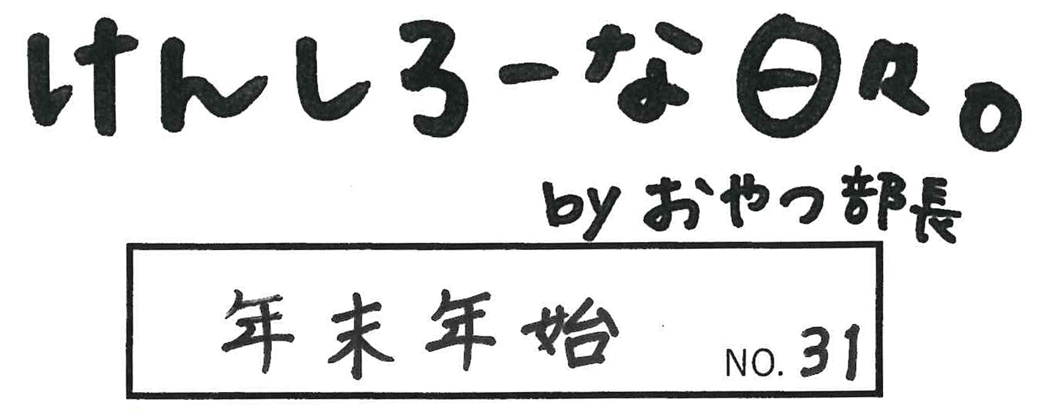 けんしろーな日々。
by おやつ部長
年末年始 NO. 31